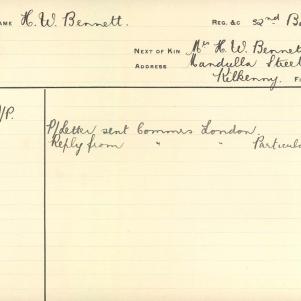 NAME H. W. Bennett. REG. &C 52nd Ba
NEXT OF KIN Mrs H. W. Bennett
ADDRESS Mandulla Street
Kilkenny. F
/P.
P/Letter sent Commrs London.
Reply from " " Particula